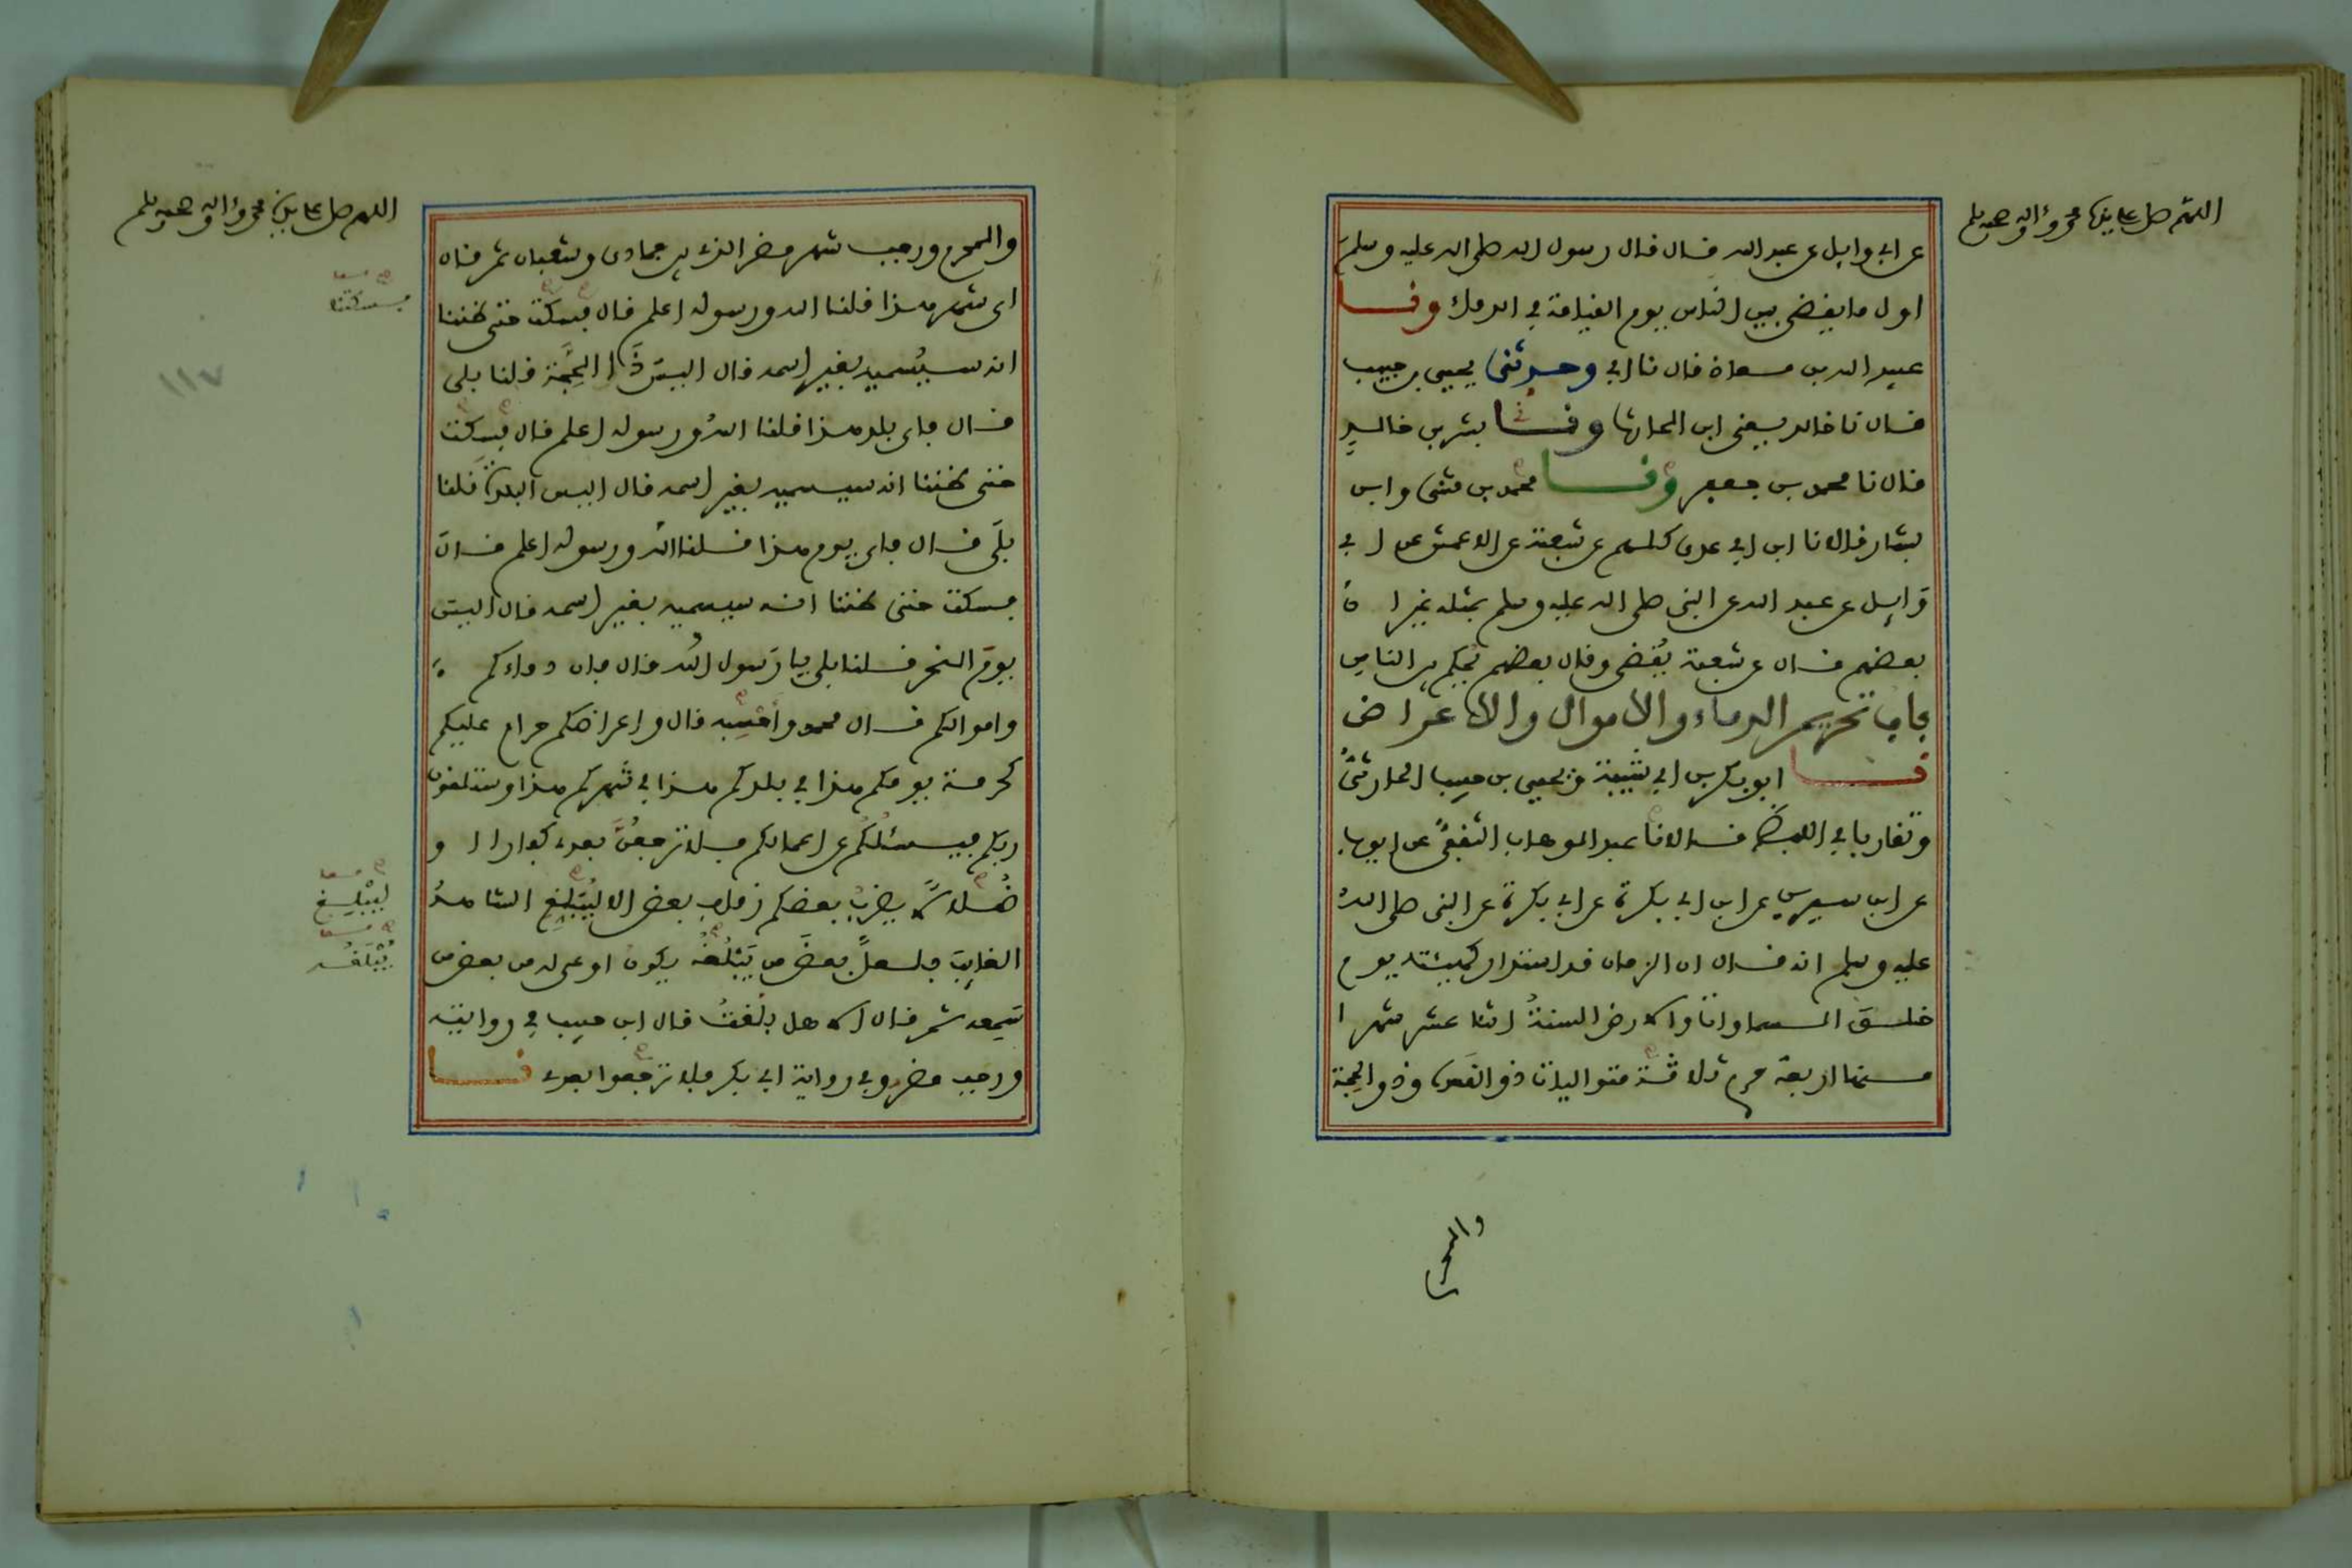 اللهم صل على نبينا محمد وءاله وصحبه وسلم
عن ابي وايل عن عبد الله قال قال رسول الله صلى الله عليه وسلم
اول ما يقضى بين الناس يوم القيامة في الدماء ونا
عبيد الله بن معاذ قال نا ابي وحدثني يحيى بن حبيب
قال نا خالد يعني ابن الحارث ونا بشر بن خالد
قال نا محمد بن جعفر ونا محمد بن مثنى وابن
بشار قالا نا ابن ابي عدي كلهم عن شعبة عن الاعمش عن ابي
وايل عن عبد الله عن النبي صلى الله عليه وسلم بمثله غير ان
بعضهم قال عن شعبة يقضى وقال بعضهم يحكم بين الناس
باب تحريم الدماء والاموال والاعراض
نا ابو بكر بن ابي شيبة ويحيى بن حبيب الحارثي
وتقاربا في اللفظ قالا نا عبد الوهاب الثقفي عن ايوب
عن ابن سيرين عن ابن ابي بكرة عن ابي بكرة عن النبي صلى الله
عليه وسلم انه قال ان الزمان قد استدار كهيئته يوم
خلق السماوات والارض السنة اثنا عشر شهرا
منها اربعة حرم ثلاثة متواليات ذو القعدة وذو الحجة
والمحرم
اللهم صل على نبينا محمد وءاله وصحبه وسلم
والمحرم ورجب شهر مضر الذي بين جمادى وشعبان ثم قال
اي شهر هذا قلنا الله ورسوله اعلم قال فسكت حتى ظننا
فسكتنا
انه سيسميه بغير اسمه قال اليس ذا الحجة قلنا بلى
١١٧
قال فاي بلد هذا قلنا الله ورسوله اعلم قال فسكت
حتى ظننا انه سيسميه بغير اسمه قال اليس البلدة قلنا
بلى قال فاي يوم هذا قلنا الله ورسوله اعلم قال
فسكت حتى ظننا انه سيسميه بغير اسمه قال اليس
يوم النحر قلنا بلى يا رسول الله قال فان دماءكم
واموالكم قال محمد واحسبه قال واعراضكم حرام عليكم
كحرمة يومكم هذا في بلدكم هذا في شهركم هذا وستلقون
ربكم فيسئلكم عن اعمالكم فلا ترجعن بعدي كفارا او
ضلالا يضرب بعضكم رقاب بعض الا ليبلغ الشاهد
ليبلغ
الغايب فلعل بعض من يبلغه يكون اوعى له من بعض من
يبلغه
سمعه ثم قال الا هل بلغت قال ابن حبيب في روايته
ورجب مضر وفي رواية ابي بكر فلا ترجعوا بعدي نا